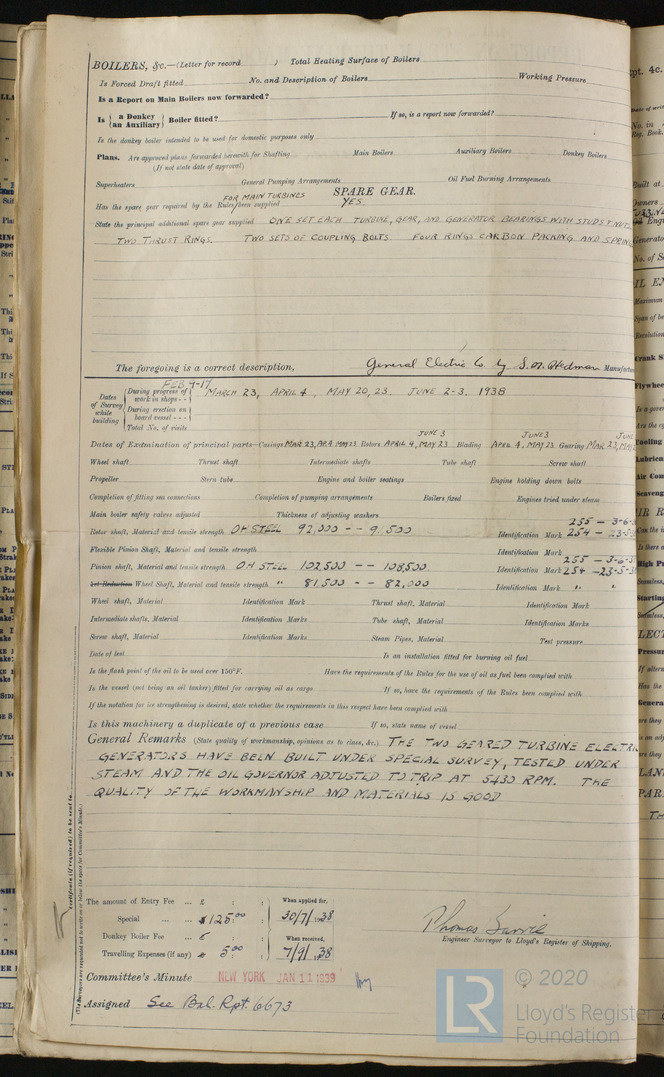 BOILERS, &c.—(Letter for record ) Total Heating Surface of Boilers
Is Forced Draft fitted No. and Description of Boilers Working Pressure
Is a Report on Main Boilers now forwarded?
Is { a Donkey (an Auxiliary) } Boiler fitted? If so, is a report now forwarded?
Is the donkey boiler intended to be used for domestic purposes only
Plans. Are approved plans forwarded herewith for Shafting Main Boilers Auxiliary Boilers Donkey Boilers
(If not state date of approval)
Superheaters General Pumping Arrangements Oil Fuel Burning Arrangements
SPARE GEAR.
FOR MAIN TURBINES
Has the spare gear required by the Rules been supplied YES.
State the principal additional spare gear supplied ONE SET EACH TURBINE, GEAR, AND GENERATOR BEARINGS WITH STUDS & NUTS
TWO THRUST RINGS. TWO SETS OF COUPLING BOLTS FOUR RINGS CARBON PACKING AND SPRING
The foregoing is a correct description, General Electric Co. by S.M. Hedman Manufact
FEB. 9-17
Dates of Survey while building
During progress of work in shops - - MARCH 23, APRIL 4, MAY 20, 23. JUNE 2-3. 1938
During erection on board vessel - - -
Total No. of visits
JUNE 3 JUNE 3 JUN
Dates of Examination of principal parts—Casings MAR 23, AP.4 MAY 23 Rotors APRIL 4, MAY 23 Blading APRIL 4. MAY 23. Gearing MAR 23, MAY
Wheel shaft Thrust shaft Intermediate shafts Tube shaft Screw shaft
Propeller Stern tube Engine and boiler seatings Engine holding down bolts
Completion of fitting sea connections Completion of pumping arrangements Boilers fixed Engines tried under steam
Main boiler safety valves adjusted Thickness of adjusting washers
255 - 3-6-
Rotor shaft, Material and tensile strength OH STEEL 92,000 -- 9 ,500 Identification Mark 254 - 23-5-
Flexible Pinion Shaft, Material and tensile strength Identification Mark
255 - 3-6-
Pinion shaft, Material and tensile strength OH STEEL 102,500 -- 108,500 Identification Mark 254 -23-5-
1st Reduction Wheel Shaft, Material and tensile strength " 81,500 -- 82,000 Identification Mark " "
Wheel shaft, Material Identification Mark Thrust shaft, Material Identification Mark
Intermediate shafts, Material Identification Marks Tube shaft, Material Identification Marks
Screw shaft, Material Identification Marks Steam Pipes, Material Test pressure
Date of test Is an installation fitted for burning oil fuel
Is the flash point of the oil to be used over 150°F. Have the requirements of the Rules for the use of oil as fuel been complied with
Is the vessel (not being an oil tanker) fitted for carrying oil as cargo If so, have the requirements of the Rules been complied with
If the notation for ice strengthening is desired, state whether the requirements in this respect have been complied with
Is this machinery a duplicate of a previous case If so, state name of vessel
General Remarks (State quality of workmanship, opinions as to class, &c.) THE TWO GEARED TURBINE ELECTRIC
GENERATORS HAVE BEEN BUILT UNDER SPECIAL SURVEY, TESTED UNDER
STEAM AND THE OIL GOVERNOR ADJUSTED TO TRIP AT 5430 RPM. THE
QUALITY OF THE WORKMANSHIP AND MATERIALS IS GOOD
Certificate (if required) to be sent to
(The Surveyors are requested not to write on or below the space for Committee's Minute.)
The amount of Entry Fee ... £ : : When applied for,
Special ... ... $125.00 : 30/7/1938
Donkey Boiler Fee ... £ : : When received,
Travelling Expenses (if any) $ 5.00 : 7/9/38
Engineer Surveyor to Lloyd's Register of Shipping.
Committee's Minute NEW YORK JAN 11 1939
Assigned See Bal. Rpt. 6673
LR © 2020
Lloyd's Register
Foundation